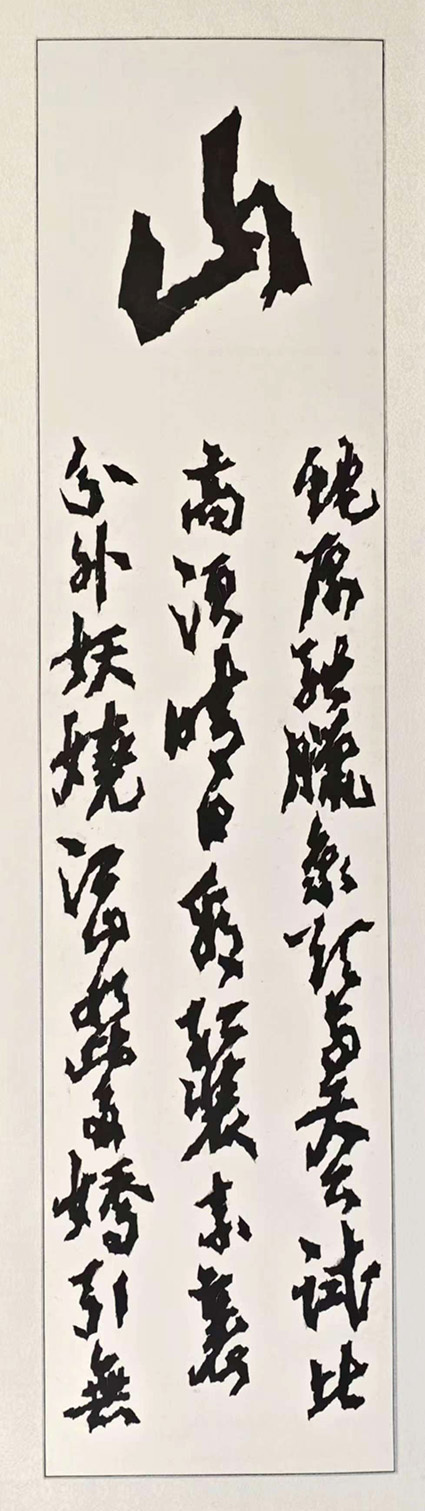 山
蛇原馳臘象欲与天公試比
高須晴日看紅裝素裹
分外妖嬈江山如此多嬌引無